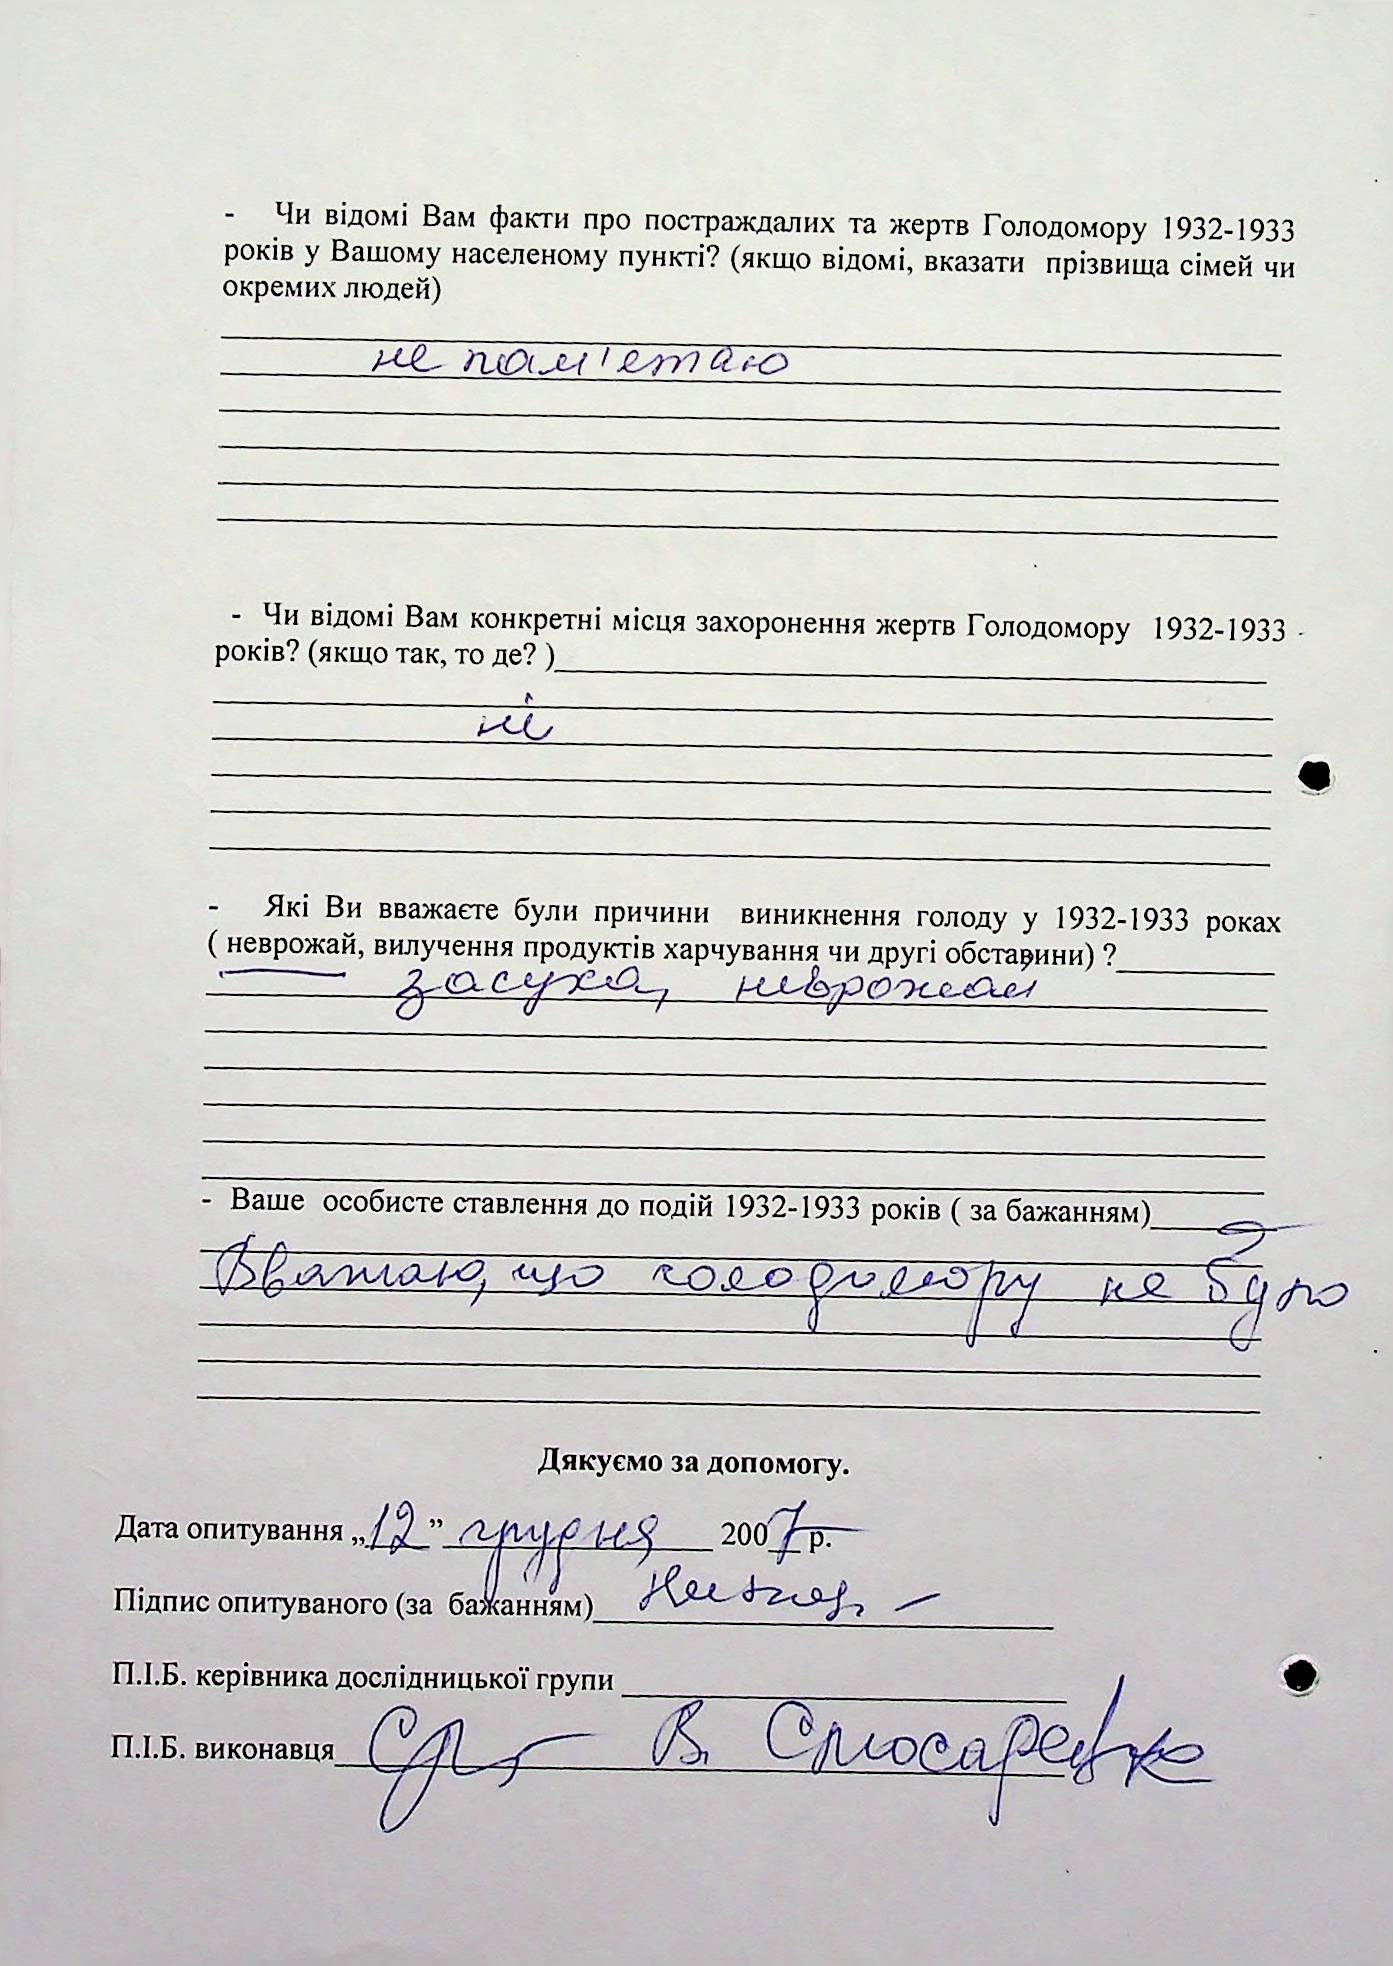 - Чи відомі Вам факти про постраждалих та жертв Голодомору 1932-1933
років у Вашому населеному пункті? (якщо відомі, вказати прізвища сімей чи
окремих людей)
не пам'етаю
- Чи відомі Вам конкретні місця захоронення жертв Голодомору 1932-1933
років? (якщо так, то де? )
ні
- Які Ви вважаєте були причини виникнення голоду у 1932-1933 роках
( неврожай, вилучення продуктів харчування чи другі обставини) ?
засуха, неврожаи
- Ваше особисте ставлення до подій 1932-1933 років ( за бажанням)
Вважаю, що голодомору не було
Дякуємо за допомогу.
Дата опитування „12” грудня 2007 р.
Підпис опитуваного (за бажанням)
П.І.Б. керівника дослідницької групи
П.І.Б. виконавця В. Слюсаренко